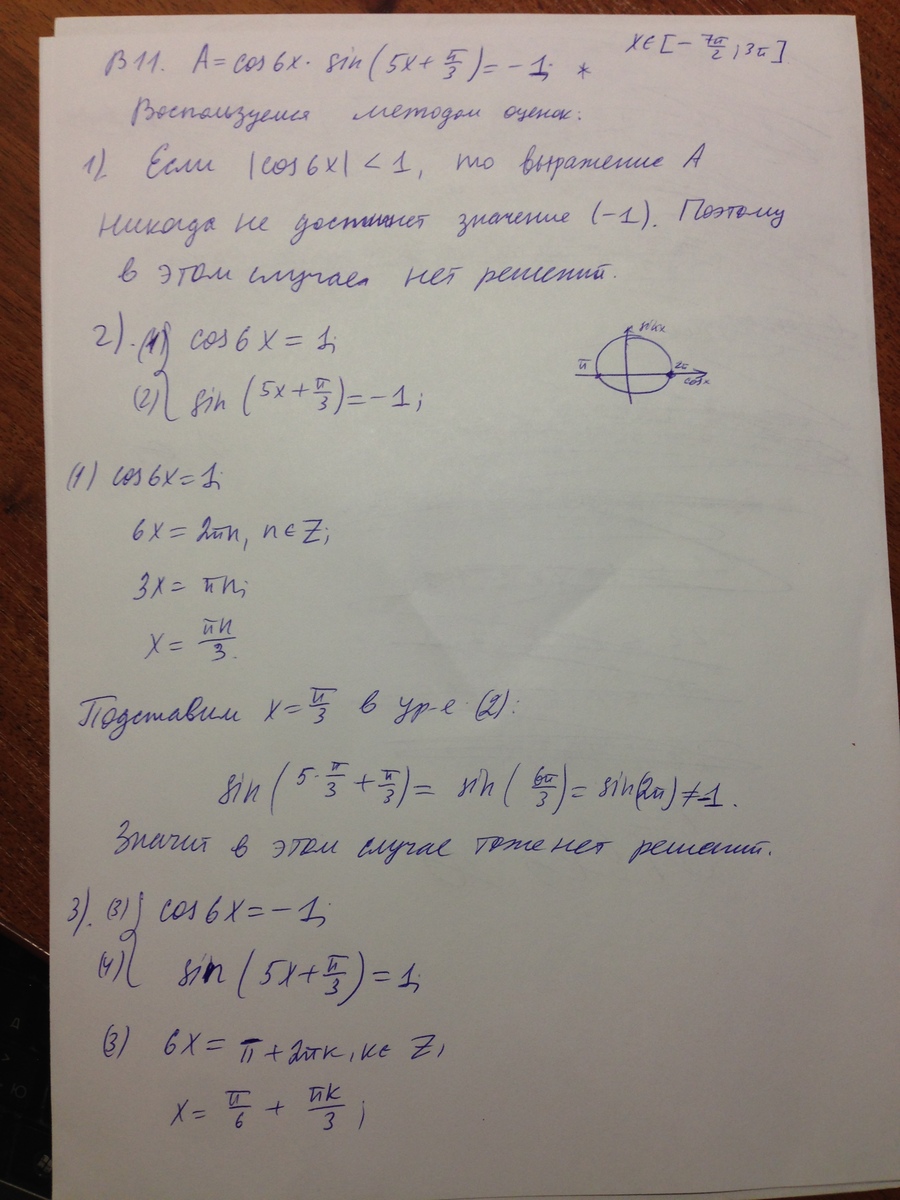 В11. A = cos6x · sin(5x + π/3) = -1; * x∈[-7π/2; 3π]
Воспользуемся методом оценок:
1). Если |cos6x| < 1, то выражение A
никогда не достигнет значение (-1). Поэтому
в этом случае нет решений.
2). (1) { cos6x = 1;
(2) { sin(5x + π/3) = -1;
sinx
π 2π
cosx
(1) cos6x = 1;
6x = 2πn, n∈Z;
3x = πn;
x = πn/3.
Подставим x = π/3 в ур-е (2):
sin(5·π/3 + π/3) = sin(6π/3) = sin(2π) ≠ -1.
Значит в этом случае тоже нет решений.
3). (3) { cos6x = -1;
(4) { sin(5x + π/3) = 1;
(3) 6x = π + 2πk, k∈Z;
x = π/6 + πk/3;